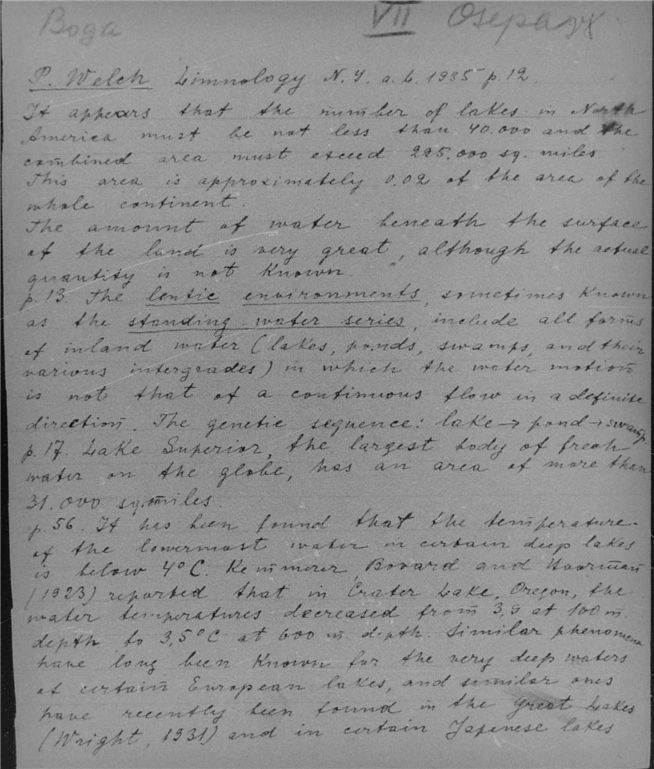 Вода
VII Озера
P. Welch Limnology N.Y. a. L. 1935 p. 12.
It appears that the number of lakes in North
America must be not less than 40.000 and the
combined area must exceed 225,000 sq. miles
This area is approximately 0.02 of the area of the
whole continent.
The amount of water beneath the surface
of the land is very great, although the actual
quantity is not known
p. 13. The lentic environments, sometimes known
as the standing-water series, include all forms
of inland water (lakes, ponds, swamps, and their
various intergrades) in which the water motion
is not that of a continuous flow in a definite
direction. The genetic sequence: lake → pond → swamp
p. 17. Lake Superior, the largest body of fresh
water on the globe, has an area of more than
31.000 sq. miles.
p. 56. It has been found that the temperature
of the lowermost water in certain deep lakes
is below 4°C. Kemmerer Bovard and Boorman
(1923) reported that in Crater Lake, Oregon, the
water temperatures decreased from 3,9 at 100 m.
depth to 3,5°C at 600 m. depth. Similar phenomena
have long been known for the very deep waters
of certain European lakes, and similar ones
have recently been found in the Great Lakes
(Wright, 1931) and in certain Japenese lakes